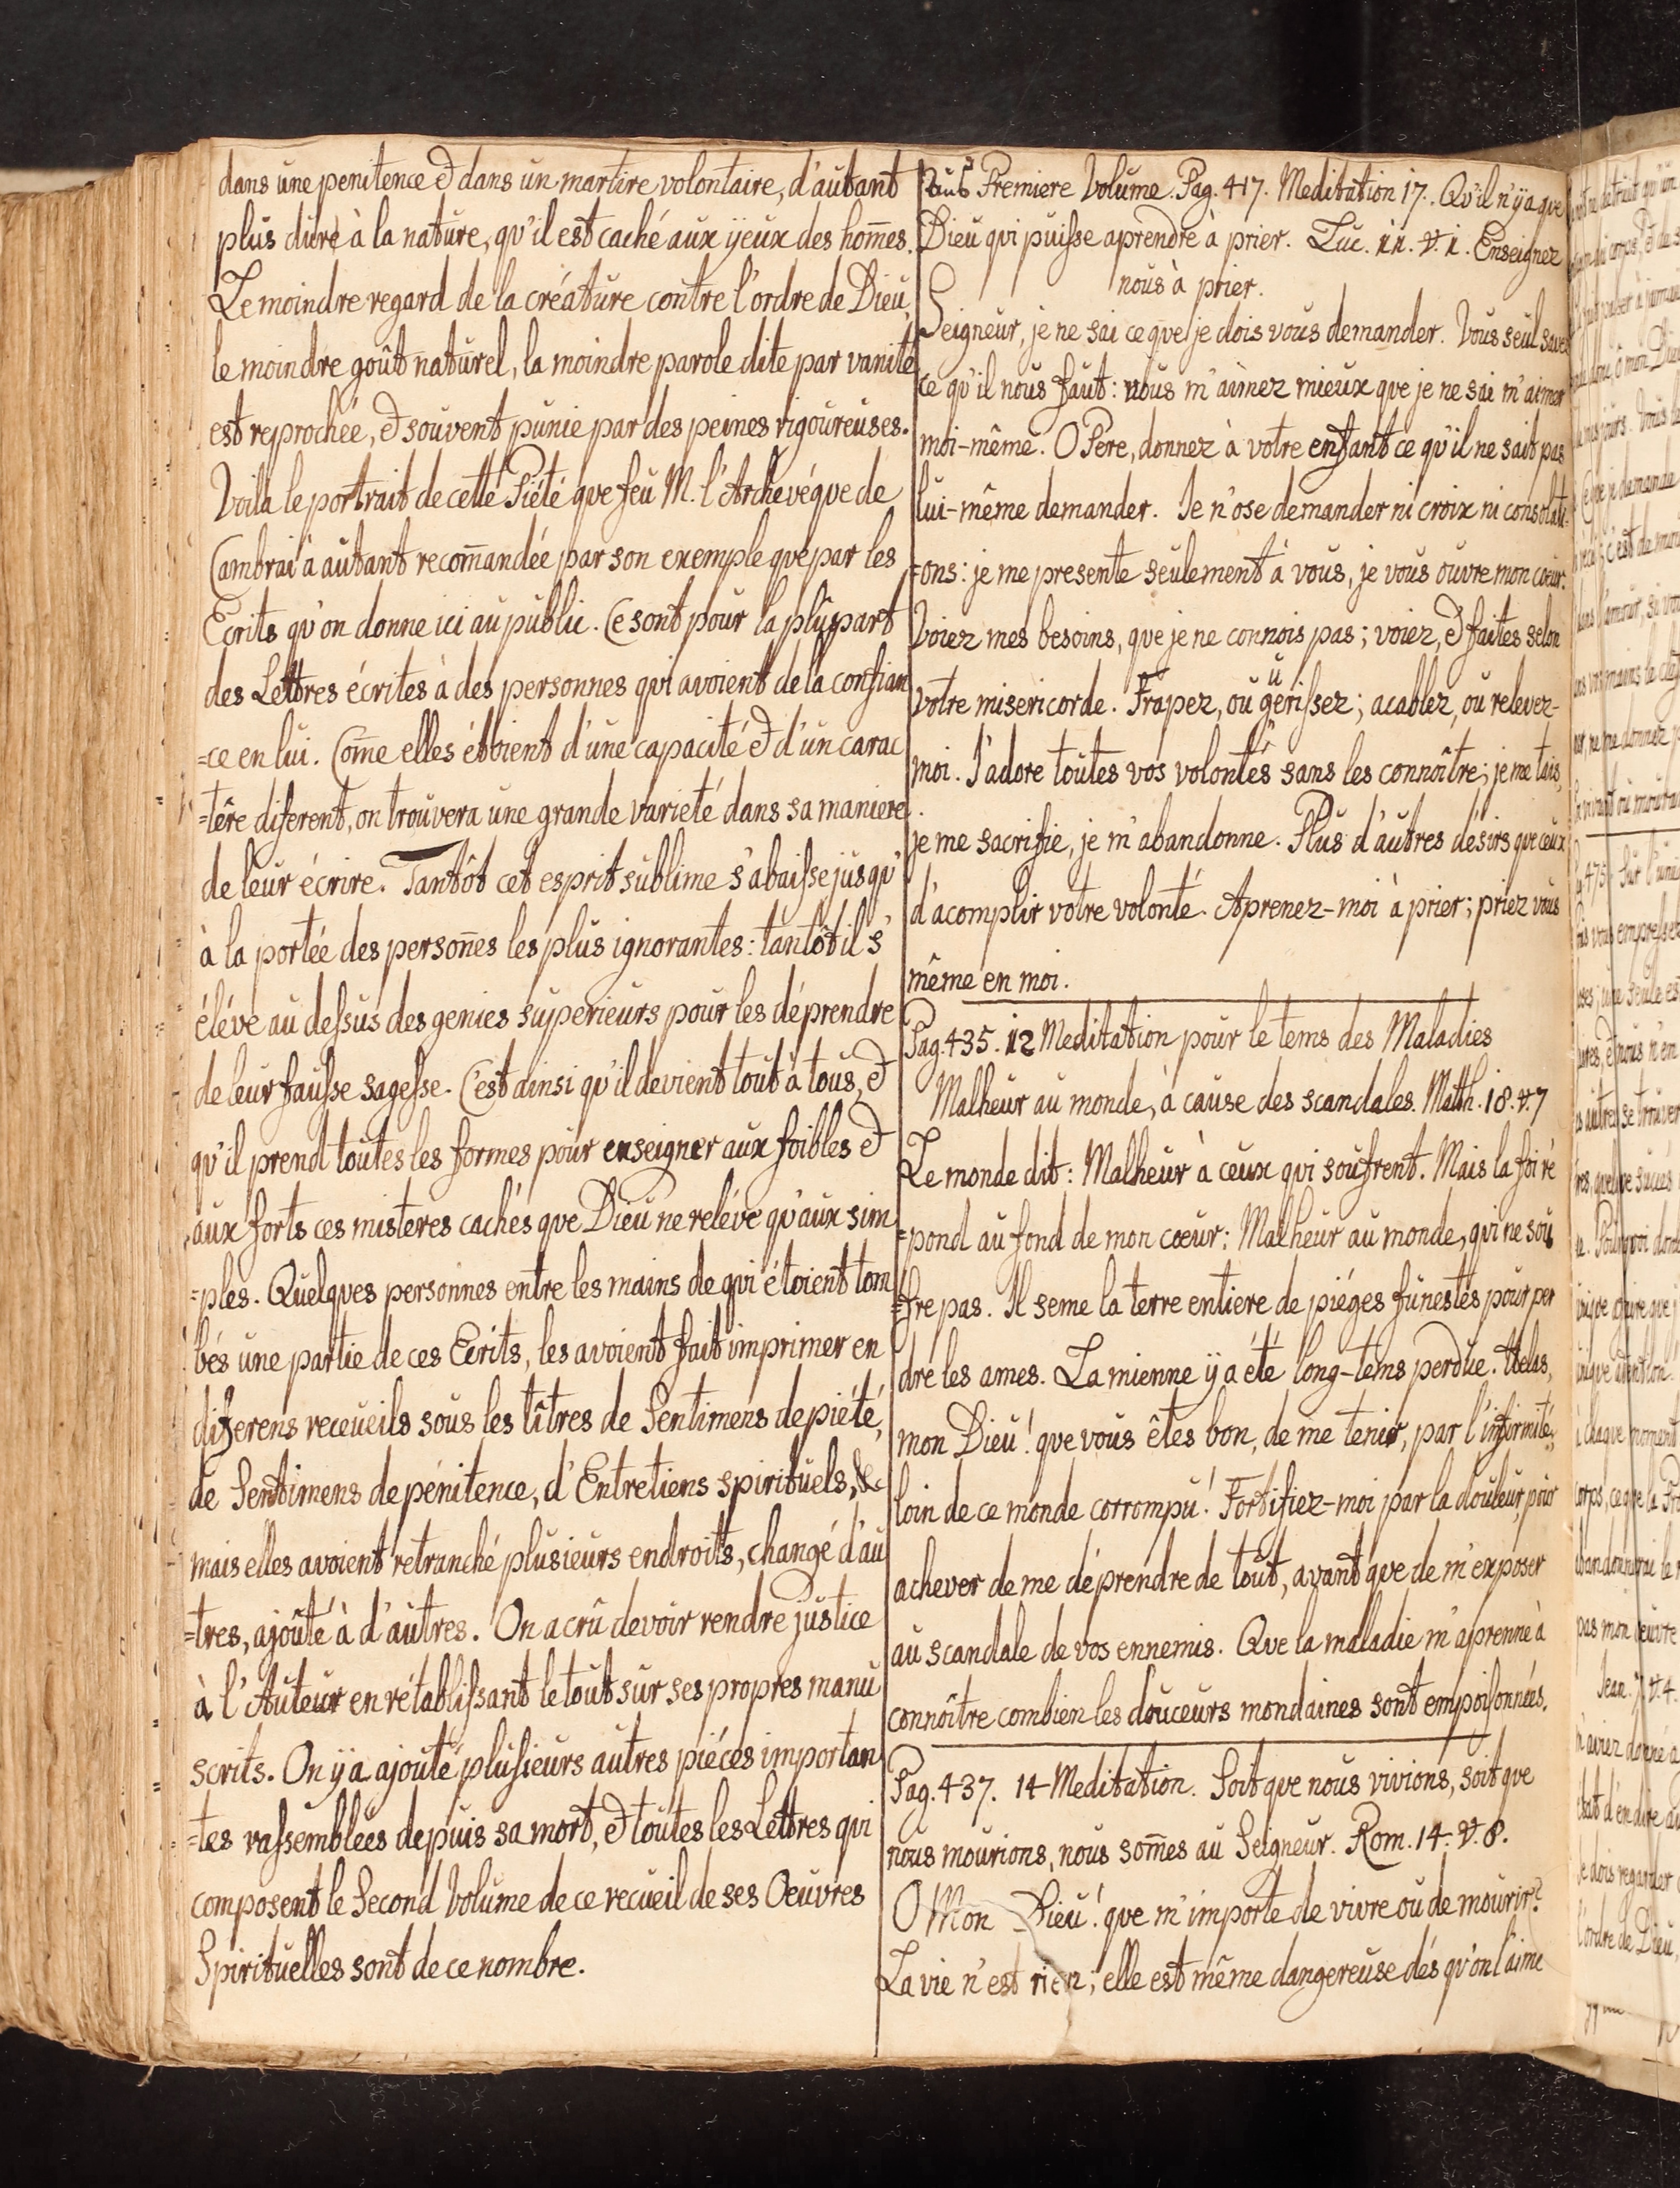 dans une penitence & dans un martire volontaire, d'autant
plus dure à la nature, qu'il est caché aux ÿeux des hom̄es.
Le moindre regard de la créature contre l'ordre de Dieu,
le moindre goût naturel, la moindre parole dite par vanité
est reprochée, & souvent punie par des peines rigoureuses.
Voila le portrait de cette Piété que feu M. l'Archevêque de
Cambrai a autant recom̄andée par son exemple que par les
Ecrits qu'on donne ici au public. Ce sont pour la plûpart
des Lettres écrites à des personnes qui avoient de la confian
=ce en lui. Com̄e elles étoient d'une capacité & d'un carac
=têre diferent, on trouvera une grande varieté dans sa maniere
de leur écrire. Tantôt cet esprit sublime s'abaisse jusqu'
à la portée des person̄es les plus ignorantes: tantôt il s'
éléve au dessus des genies superieurs pour les déprendre
de leur fausse sagesse. C'est ainsi qu'il devient tout à tous, &
qu'il prend toutes les formes pour enseigner aux foibles &
aux forts ces misteres cachés que Dieu ne reléve qu'aux sim
=ples. Quelques personnes entre les mains de qui étoient tom
bés une partie de ces Ecrits, les avoient fait imprimer en
diferens receueils sous les tîtres de Sentimens de piété,
de Sentimens de pénitence, d'Entretiens spirituels, &c
mais elles avoient retranché plusieurs endroits, changé d'au
=tres, ajoûté à d'autres. On a crû devoir rendre justice
à l'Auteur en rétablissant le tout sur ses propres manu
scrits. On ÿ a ajouté plusieurs autres piéces importan
=tes rassemblées depuis sa mort, & toutes les Lettres qui
composent le Second Volume de ce recueil de ses Oeuvres
Spirituelles sont de ce nombre.
Premiere Volume. Pag. 417. Meditation 17. Qu'il n'ÿ a que
Dieu qui puisse aprendre à prier. Luc. 11. v. 1. Enseignez
nous à prier.
Seigneur, je ne sai ce que je dois vous demander. Vous seul savez
ce qu'il nous faut: vous m'aimez mieux que je ne sai m'aimer
moi-même. O Pere, donnez à votre enfant ce qu'il ne sait pas
lui-même demander. Je n'ose demander ni croix ni consolati
=ons: je me presente seulement à vous, je vous ouvre mon cœur.
Voiez mes besoins, que je ne connois pas; voiez, & faites selon
votre misericorde. Frapez, ou guérissez; acablez, ou relevez-
moi. J'adore toutes vos volontés sans les connoître; je me tais,
je me sacrifie, je m'abandonne. Plus d'autres désirs que ceux
d'acomplir votre volonté. Aprenez-moi à prier; priez vous
même en moi.
Pag. 435. 12 Meditation pour le tems des Maladies
Malheur au monde, à cause des scandales. Matth. 18. v. 7
Le monde dit: Malheur à ceux qui soufrent. Mais la foi ré
=pond au fond de mon cœur: Malheur au monde, qui ne sou
=fre pas. Il seme la terre entiere de piéges funestes pour per
dre les ames. La mienne ÿ a été long-tems perdue. Helas,
mon Dieu! que vous êtes bon, de me tenir, par l'infirmité,
loin de ce monde corrompu! Fortifiez-moi par la douleur, pour
achever de me déprendre de tout, avant que de m'exposer
au scandale de vos ennemis. Que la maladie m'aprenne à
connoître combien les douceurs mondaines sont empoisonnées.
Pag. 437. 14 Meditation. Soit que nous vivions, soit que
nous mourions, nous som̄es au Seigneur. Rom. 14. v. 8.
O Mon Dieu! que m'importe de vivre ou de mourir?
La vie n'est rien; elle est même dangereuse dés qu'on l'aime